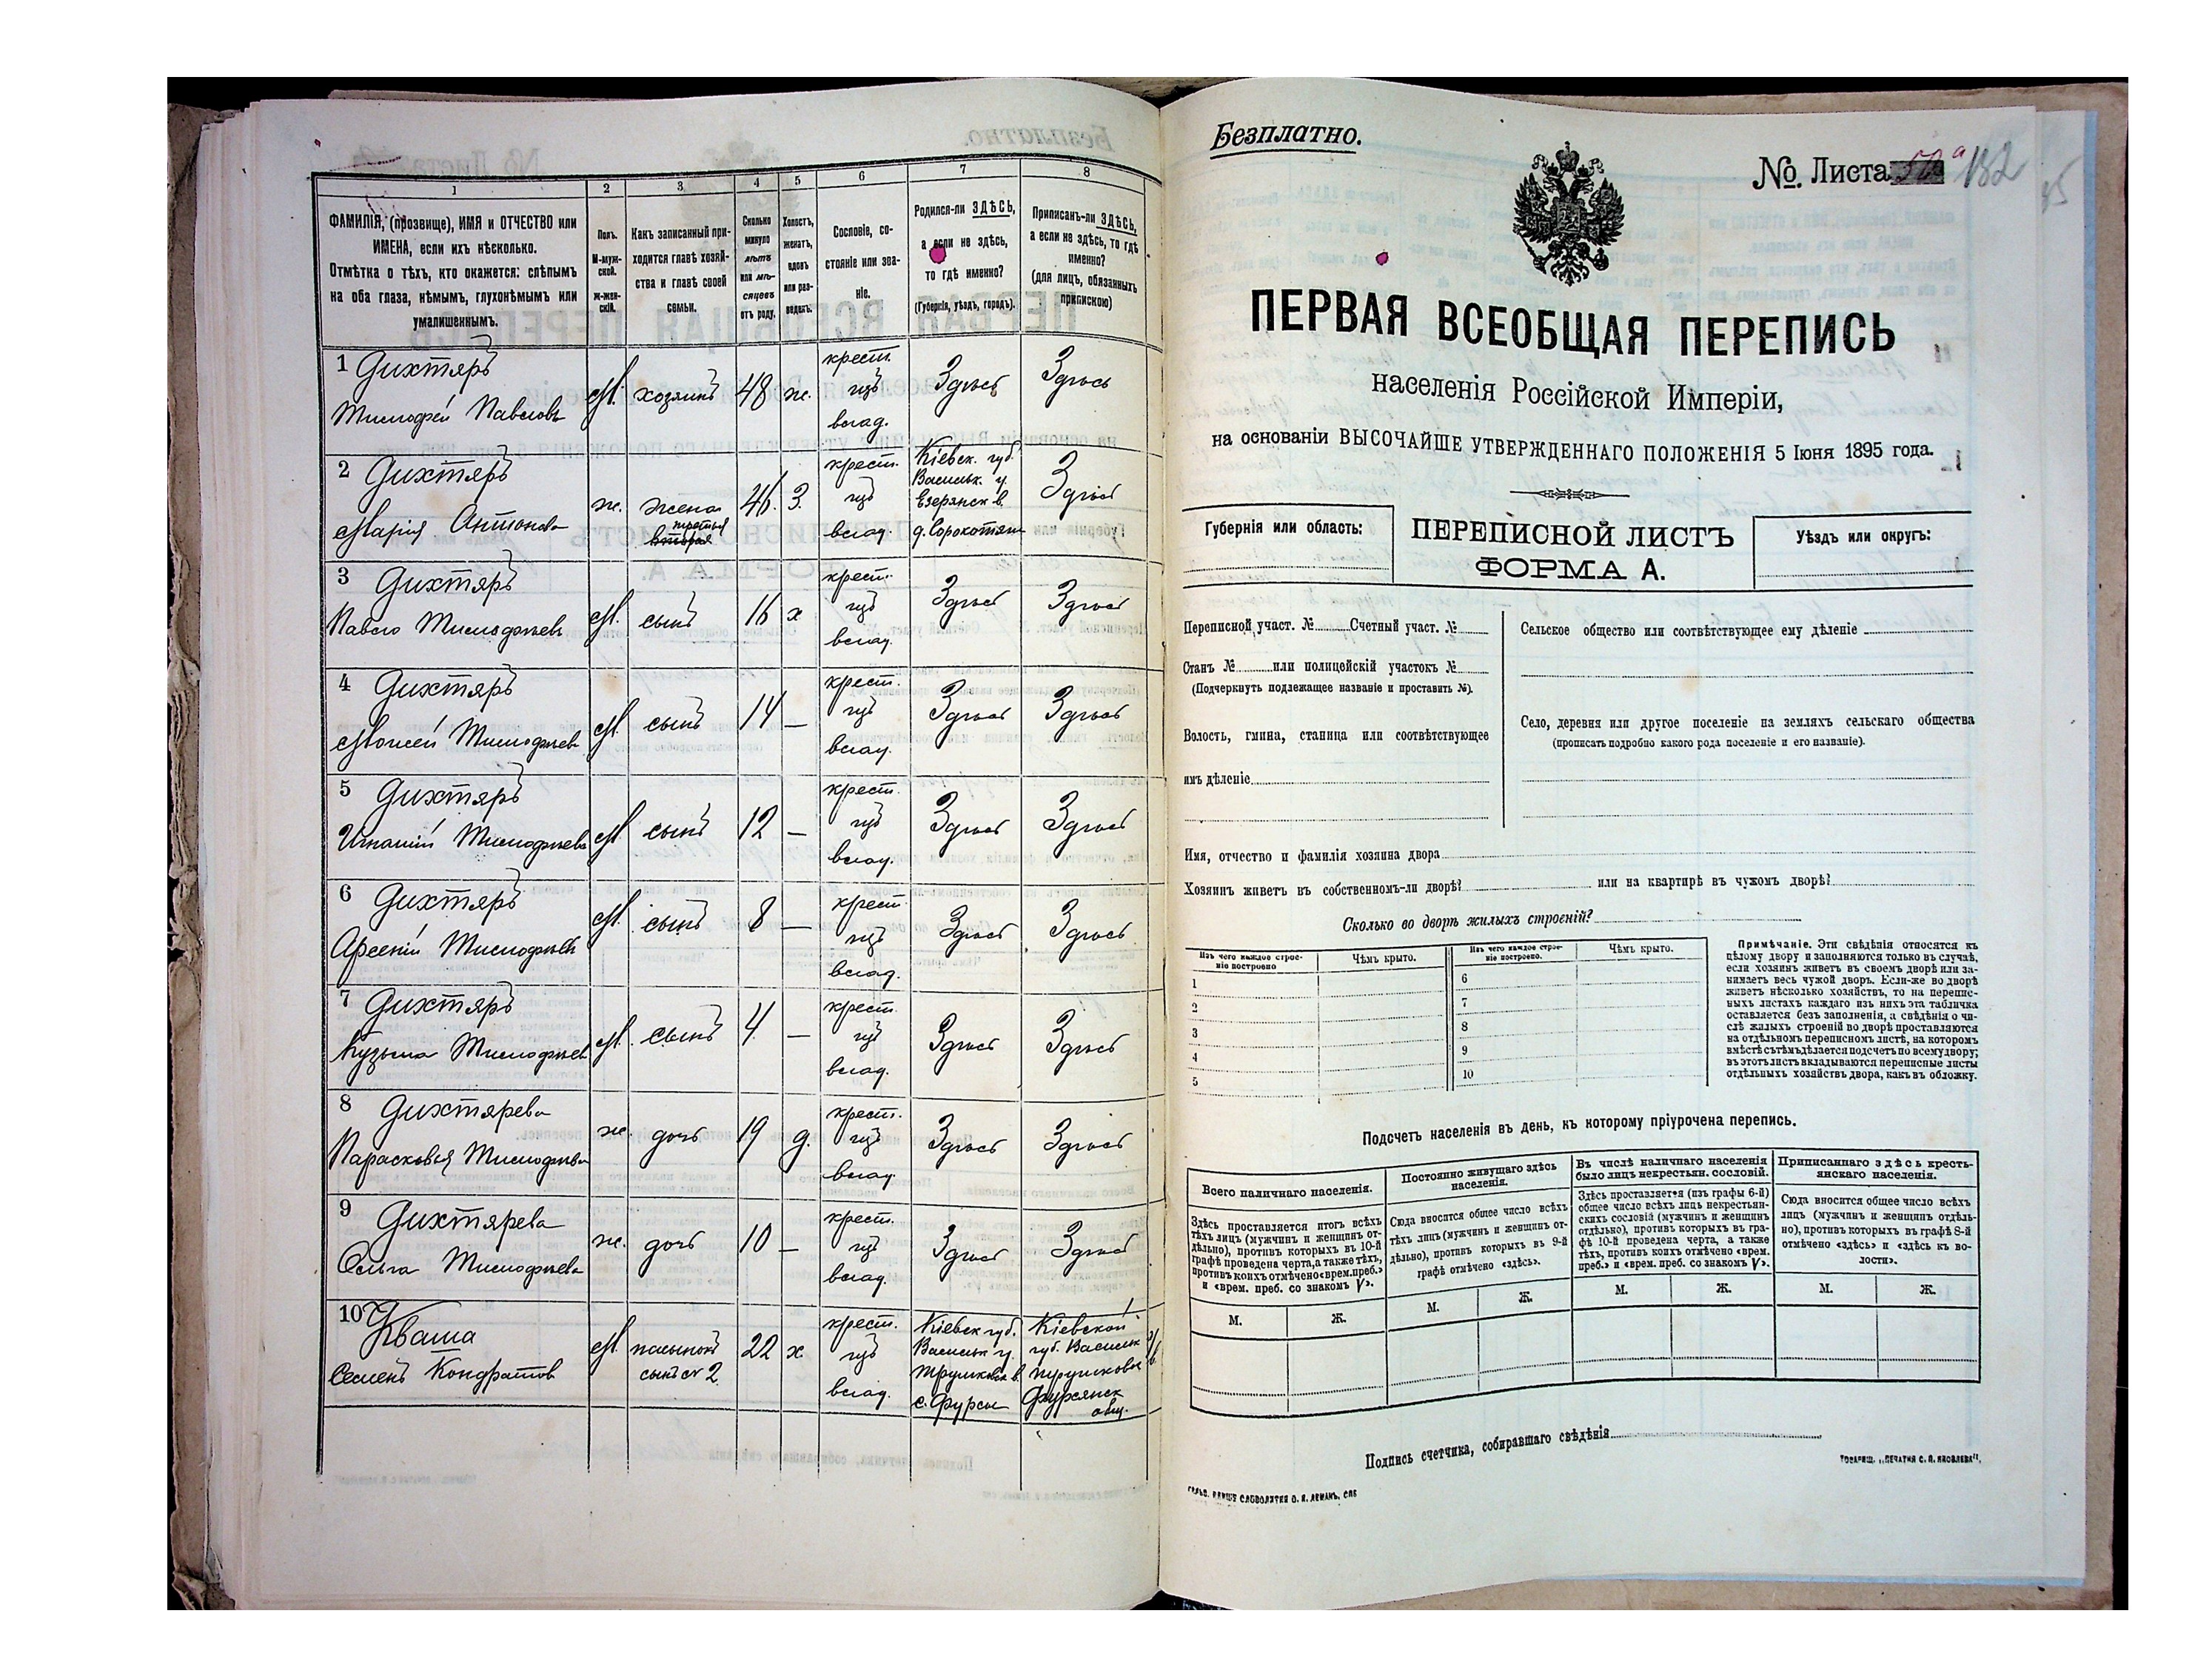 1
2
3
4
5
6
7
8
ФАМИЛІЯ, (прозвище), ИМЯ и ОТЧЕСТВО или
ИМЕНА, если ихъ нѣсколько.
Отмѣтка о тѣхъ, кто окажется: слѣпымъ
на оба глаза, нѣмымъ, глухонѣмымъ или
умалишеннымъ.
Полъ.
М-муж-
ской.
Ж-жен-
скій.
Какъ записанный при-
ходится главѣ хозяй-
ства и главѣ своей
семьи.
Сколько
минуло
лѣтъ
или мѣ-
сяцевъ
отъ роду.
Холостъ,
женатъ,
вдовъ
или раз-
веденъ.
Сословіе, со-
стояніе или зва-
ніе.
Родился-ли ЗДѢСЬ,
а если не здѣсь,
то гдѣ именно?
(Губернія, уѣздъ, городъ).
Приписанъ-ли ЗДѢСЬ,
а если не здѣсь, то гдѣ
именно?
(для лицъ, обязанныхъ
припискою)
1 Дихтяръ
Тимофей Павловъ
М.
хозяинъ
48
ж.
крест.
изъ
влад.
Здѣсь
Здѣсь
2 Дихтяръ
Марія Антонова
ж.
жена
третья
вторая
46.
З.
крест.
изъ
влад
Кіевск. губ.
Васильк. у.
Езерянск в.
д. Сорокотяги
Здѣсь
3 Дихтяръ
Павло Тимофѣевъ
М.
сынъ
16
х
крест.
изъ
влад.
Здѣсь
Здѣсь
4 Дихтяръ
Моисей Тимофѣевъ
М.
сынъ
14
—
крест.
изъ
влад.
Здѣсь
Здѣсь
5 Дихтяръ
Игнатій Тимофѣевъ
М
сынъ
12
—
крест.
изъ
влад.
Здѣсь
Здѣсь
6 Дихтяръ
Арсеній Тимофѣевъ
М.
сынъ
8
—
крест
изъ
влад.
Здѣсь
Здѣсь
7 Дихтяръ
Кузьма Тимофѣевъ
М.
сынъ
4
—
крест.
изъ
влад.
Здѣсь
Здѣсь
8 Дихтярева
Парасковья Тимофѣева
ж.
дочь
19
д.
крест.
изъ
влад
Здѣсь
Здѣсь
9 Дихтярева
Ольга Тимофѣева
ж.
дочь
10
—
крест.
изъ
влад.
Здѣсь
Здѣсь
10 Кваша
Семенъ Кондратовъ
М.
пасынокъ
сынъ № 2
22
х
крест.
изъ
влад.
Кіевск губ.
Васильк у.
Трушковск в.
с. Фурсы
Кіевской
губ. Васильк
Трушковск
Фурсянск
общ.
Безплатно.
№. Листа 182
ПЕРВАЯ ВСЕОБЩАЯ ПЕРЕПИСЬ
населенія Россійской Имперіи,
на основаніи ВЫСОЧАЙШЕ УТВЕРЖДЕННАГО ПОЛОЖЕНІЯ 5 Іюня 1895 года.
Губернія или область:
ПЕРЕПИСНОЙ ЛИСТЪ
ФОРМА А.
Уѣздъ или округъ:
Переписной участ. № Счетный участ. №
Станъ № или полицейскій участокъ №
(Подчеркнуть подлежащее названіе и проставить №).
Волость, гмина, станица или соотвѣтствующее
имъ дѣленіе
Сельское общество или соотвѣтствующее ему дѣленіе
Село, деревня или другое поселеніе на земляхъ сельскаго общества
(прописать подробно какого рода поселеніе и его названіе).
Имя, отчество и фамилія хозяина двора
Хозяинъ живетъ въ собственномъ-ли дворѣ? или на квартирѣ въ чужомъ дворѣ?
Сколько во дворѣ жилыхъ строеній?
Изъ чего каждое строе-
ніе построено
Чѣмъ крыто.
Изъ чего каждое строе-
ніе построено.
Чѣмъ крыто.
1
2
3
4
5
6
7
8
9
10
Примѣчаніе. Эти свѣдѣнія относятся къ
цѣлому двору и заполняются только въ случаѣ,
если хозяинъ живетъ въ своемъ дворѣ или за-
нимаетъ весь чужой дворъ. Если-же во дворѣ
живетъ нѣсколько хозяйствъ, то на перепис-
ныхъ листахъ каждаго изъ нихъ эта табличка
оставляется безъ заполненія, а свѣдѣнія о чи-
слѣ жилыхъ строеній во дворѣ проставляются
на отдѣльномъ переписномъ листѣ, на которомъ
вмѣстѣ съ тѣмъ дѣлается подсчетъ по всему двору;
въ этотъ листъ вкладываются переписные листы
отдѣльныхъ хозяйствъ двора, какъ въ обложку.
Подсчетъ населенія въ день, къ которому пріурочена перепись.
Всего наличнаго населенія.
Здѣсь проставляется итогъ всѣхъ
тѣхъ лицъ (мужчинъ и женщинъ от-
дѣльно), противъ которыхъ въ 10-й
графѣ проведена черта, а также тѣхъ,
противъ коихъ отмѣчено «врем. преб.»
и «врем. преб. со знакомъ V».
М.
Ж.
Постоянно живущаго здѣсь
населенія.
Сюда вносится общее число всѣхъ
тѣхъ лицъ (мужчинъ и женщинъ от-
дѣльно), противъ которыхъ въ 9-й
графѣ отмѣчено «здѣсь».
М.
Ж.
Въ числѣ наличнаго населенія
было лицъ некрестьян. сословій.
Здѣсь проставляется (изъ графы 6-й)
общее число всѣхъ лицъ некрестьян-
скихъ сословій (мужчинъ и женщинъ
отдѣльно), противъ которыхъ въ гра-
фѣ 10-й проведена черта, а также
тѣхъ, противъ коихъ отмѣчено «врем.
преб.» и «врем. преб. со знакомъ V».
М.
Ж.
Приписаннаго здѣсь кресть-
янскаго населенія.
Сюда вносится общее число всѣхъ
лицъ (мужчинъ и женщинъ отдѣль-
но), противъ которыхъ въ графѣ 8-й
отмѣчено «здѣсь» и «здѣсь къ во-
лости».
М.
Ж.
Подпись счетчика, собиравшаго свѣдѣнія
ТОВАРИЩ. „ПЕЧАТНЯ С. П. ЯКОВЛЕВА“,
СЛОВОЛИТНИ О. И. ЛЕМАНЪ, СПБ